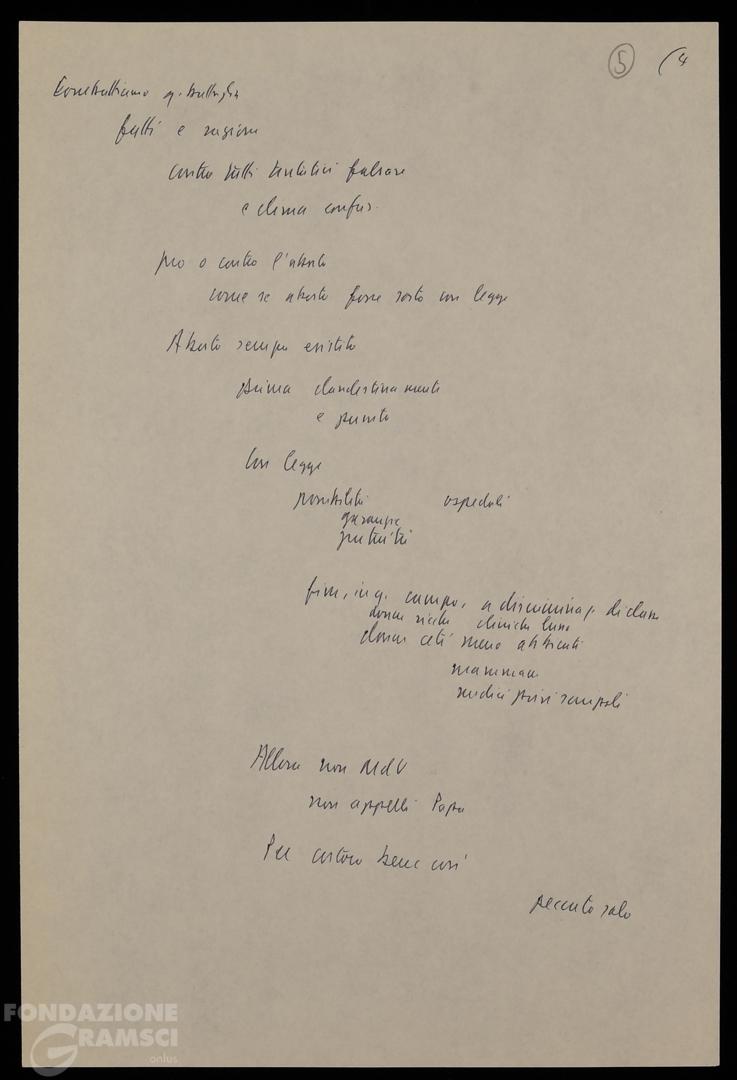 5 (4
Combattiamo q. battaglia
fatti e ragione
contro tutti tentativi falsare
e clima confus.
pro o contro l'aborto
come se aborto fosse sorto con legge
Aborto sempre esistito
prima clandestinamente
e punito
Con legge
possibilità ospedali
garanzie
gratuità
fine, in q. campo, a discriminaz. di classe
donne ricche cliniche lusso
donne ceti meno abbienti
mammane
medici privi scrupoli
Allora non MdV
non appelli Papa
Per costoro bene così
peccato solo
FONDAZIONE
GRAMSCI
onlus